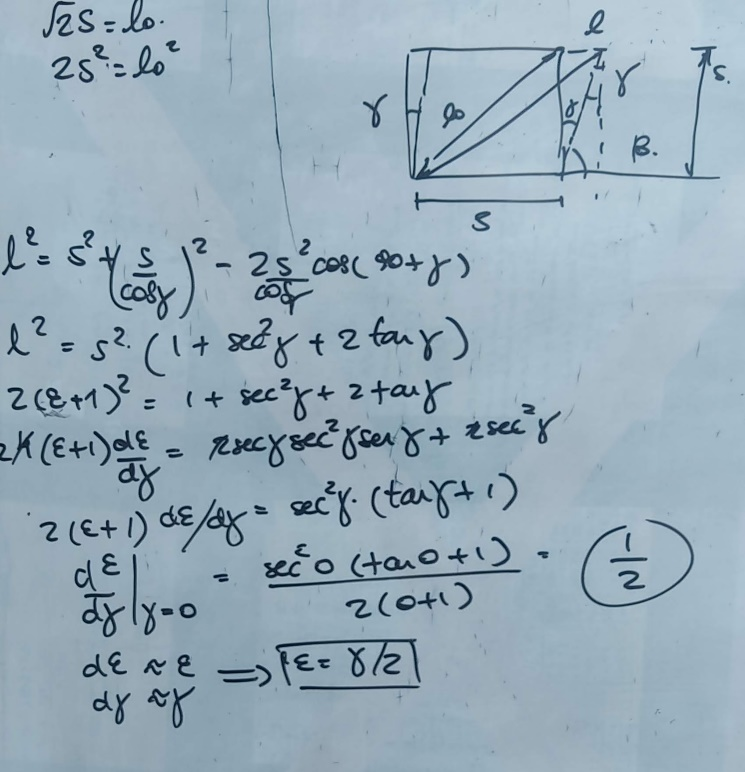 √2S = lo.
2S² = lo²
l
γ
lo
γ
γ
β.
S.
S
l² = S² + (S/cosγ)² - 2S²/cosγ cos(90+γ)
l² = S². (1 + sec²γ + 2 tanγ)
2(ε+1)² = 1 + sec²γ + 2 tanγ
(ε+1) dε/dγ = 2secγ sec²γ senγ + 2sec²γ
2(ε+1) dε/dγ = sec²γ. (tanγ + 1)
dε/dγ |γ=0 = sec²0 (tan0+1) / 2(0+1) = 1/2
dε ≈ ε ⟹ ε = γ/2
dγ ≈ γ